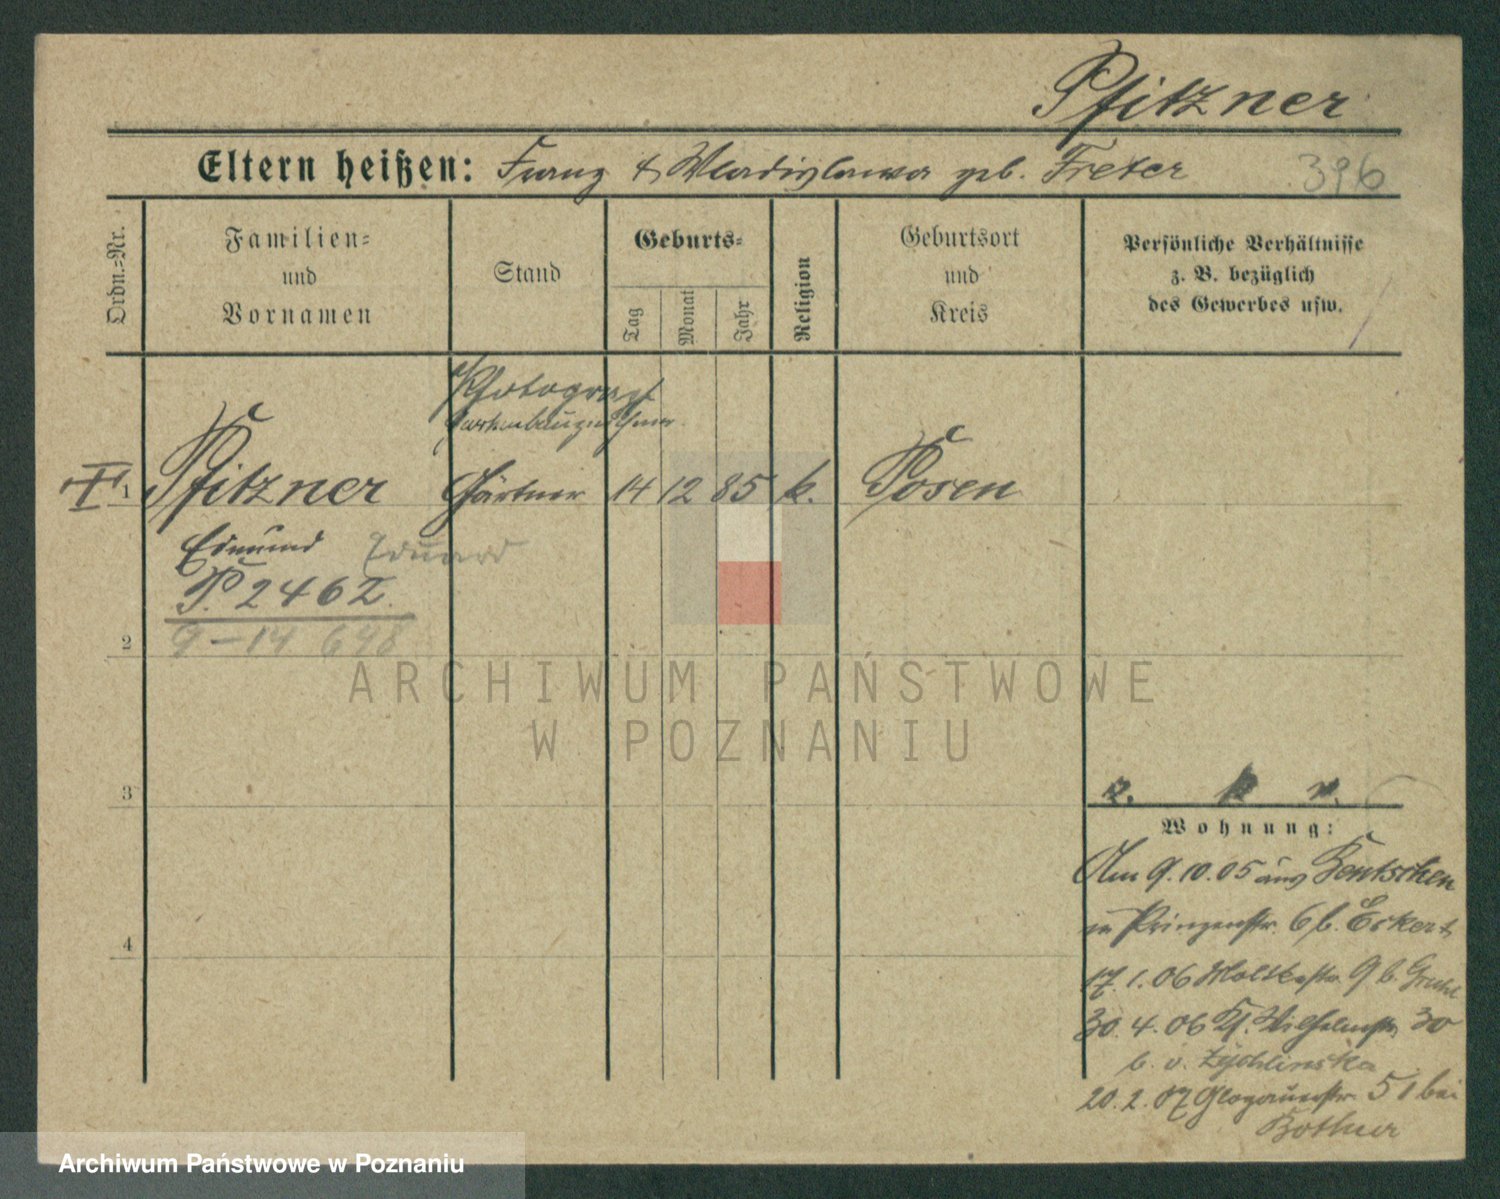 Pfitzner
Eltern heißen: Franz & Wladislawa geb. Freter 396
Ordn.-Nr.
Familien-
und
Vornamen
Stand
Geburts-
Tag
Monat
Jahr
Religion
Geburtsort
und
Kreis
Persönliche Verhältnisse
z. B. bezüglich
des Gewerbes usw.
Photograph
1 Pfitzner Gärtner 14 12 85 k. Posen
Edmund Eduard
P. 2462.
9-14 698
2
3
4
Wohnung:
Am 9.10.05 aus Bentschen
n Prinzenstr. 6 b. Eckert
17.1.06 Moltkestr. 9 b.
30.4.06 Kl. Wilhelmstr. 30
b. v. Zychlinska
20.2.07 Glogauerstr. 51 bei
ARCHIWUM PAŃSTWOWE
W POZNANIU
Archiwum Państwowe w Poznaniu